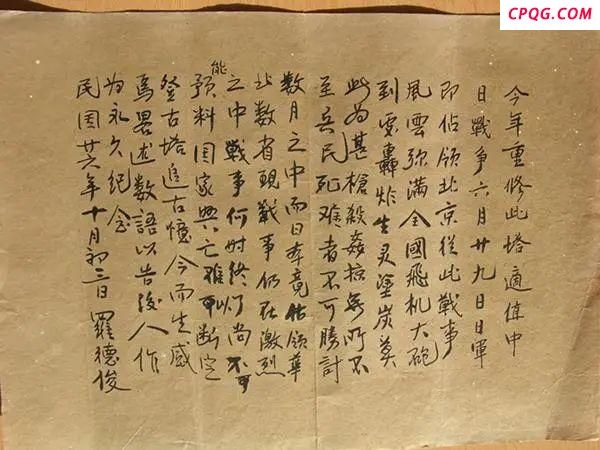 CPQG.COM
今年重修此塔適值中
日戰争六月廿九日日軍
即佔領北京從此戰事
風雲弥滿全國飛机大砲
到處轟炸生灵塗炭莫
此为甚槍殺姦掠無所不
至兵民死难者不可勝計
数月之中而日本竟佔領華
北数省現戰事仍在激烈
之中戰事何时終了尚不
能預料国家興亡难以断定
登古塔追古憶今而生感
焉畧述数語以告後人作
为永久纪念
民国廿六年十月初三日羅德俊